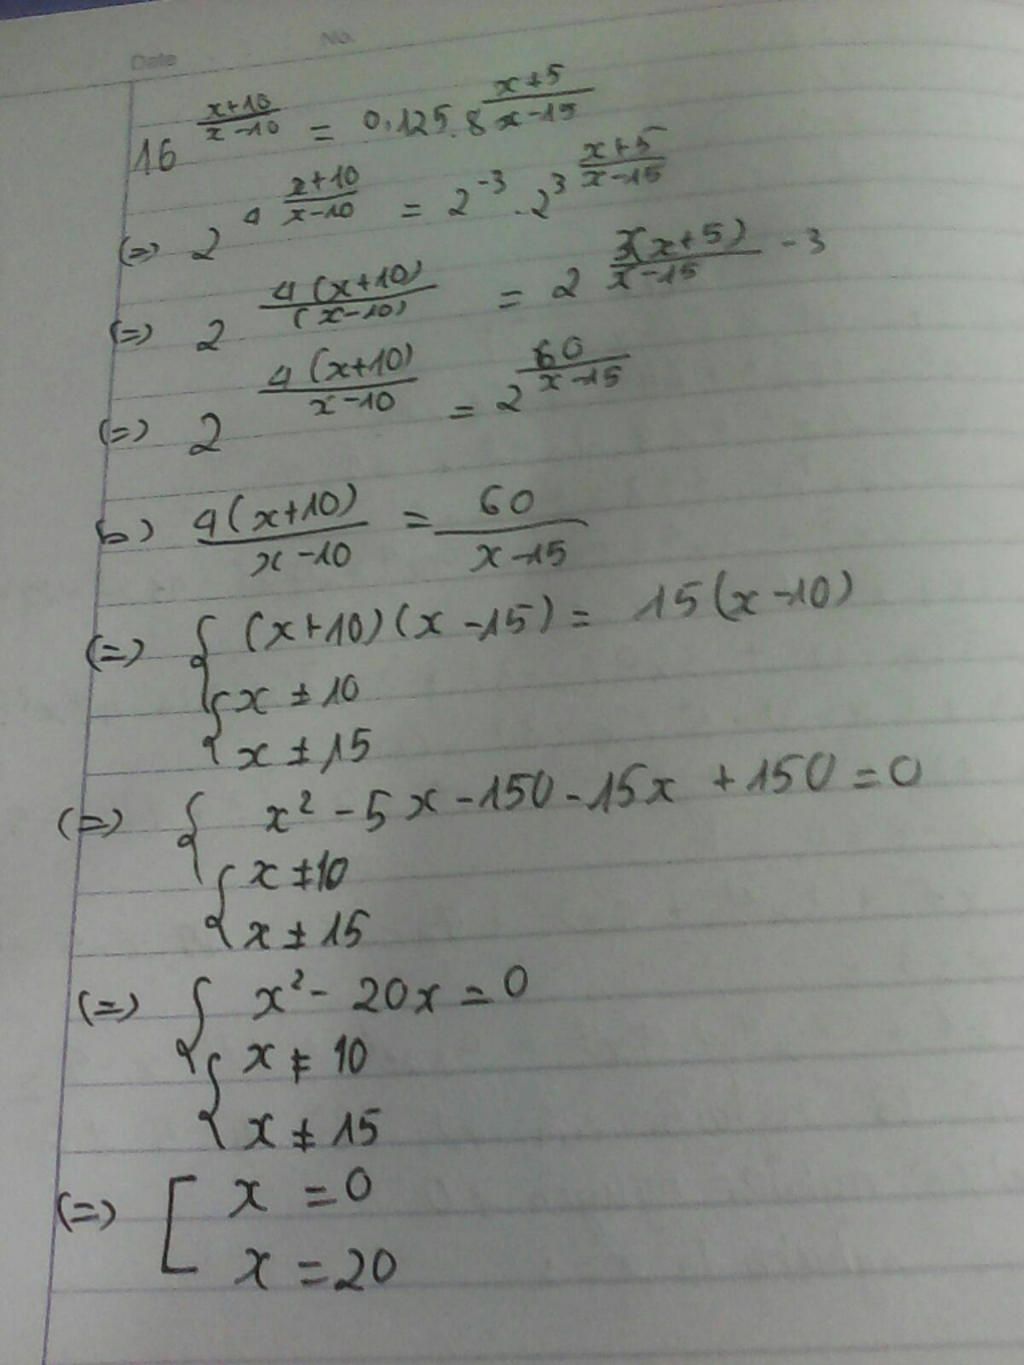 Date No.
16^{\frac{x+10}{x-10}} = 0.125.8^{\frac{x+5}{x-15}}
(=) 2^{4\frac{x+10}{x-10}} = 2^{-3}.2^{3\frac{x+5}{x-15}}
(=) 2^{\frac{4(x+10)}{(x-10)}} = 2^{\frac{3(x+5)}{x-15}-3}
(=) 2^{\frac{4(x+10)}{x-10}} = 2^{\frac{60}{x-15}}
(=) \frac{4(x+10)}{x-10} = \frac{60}{x-15}
(=) { (x+10)(x-15) = 15(x-10)
{ x ≠ 10
x ≠ 15
(=) { x² - 5x - 150 - 15x + 150 = 0
{ x ≠ 10
x ≠ 15
(=) { x² - 20x = 0
{ x ≠ 10
x ≠ 15
(=) [ x = 0
x = 20